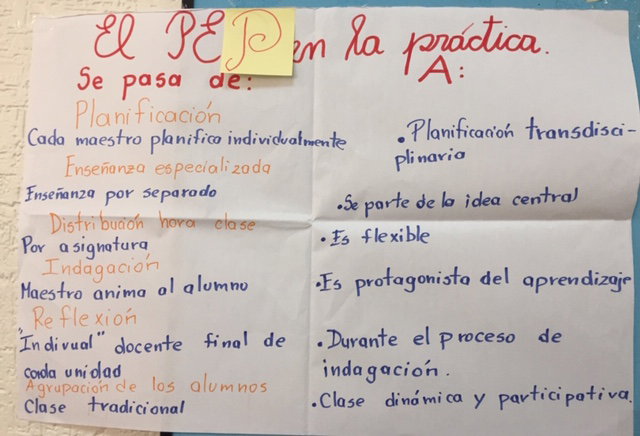 El PEP en la práctica.
Se pasa de:
A:
Planificación
Cada maestro planifica individualmente
• Planificación transdisci-
plinaria
Enseñanza especializada
Enseñanza por separado
• Se parte de la idea central
Distribuión hora clase
Por asignatura
• Es flexible
Indagación
Maestro anima al alumno
• Es protagonista del aprendizaje
Reflexión
"Indivual" docente final de
cada unidad
• Durante el proceso de
indagación.
Agrupación de los alumnos
Clase tradicional
• Clase dinámica y participativa.